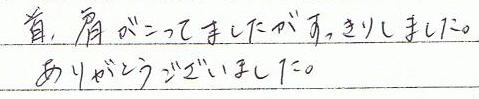 首、肩がこってましたがすっきりしました。
ありがとうございました。